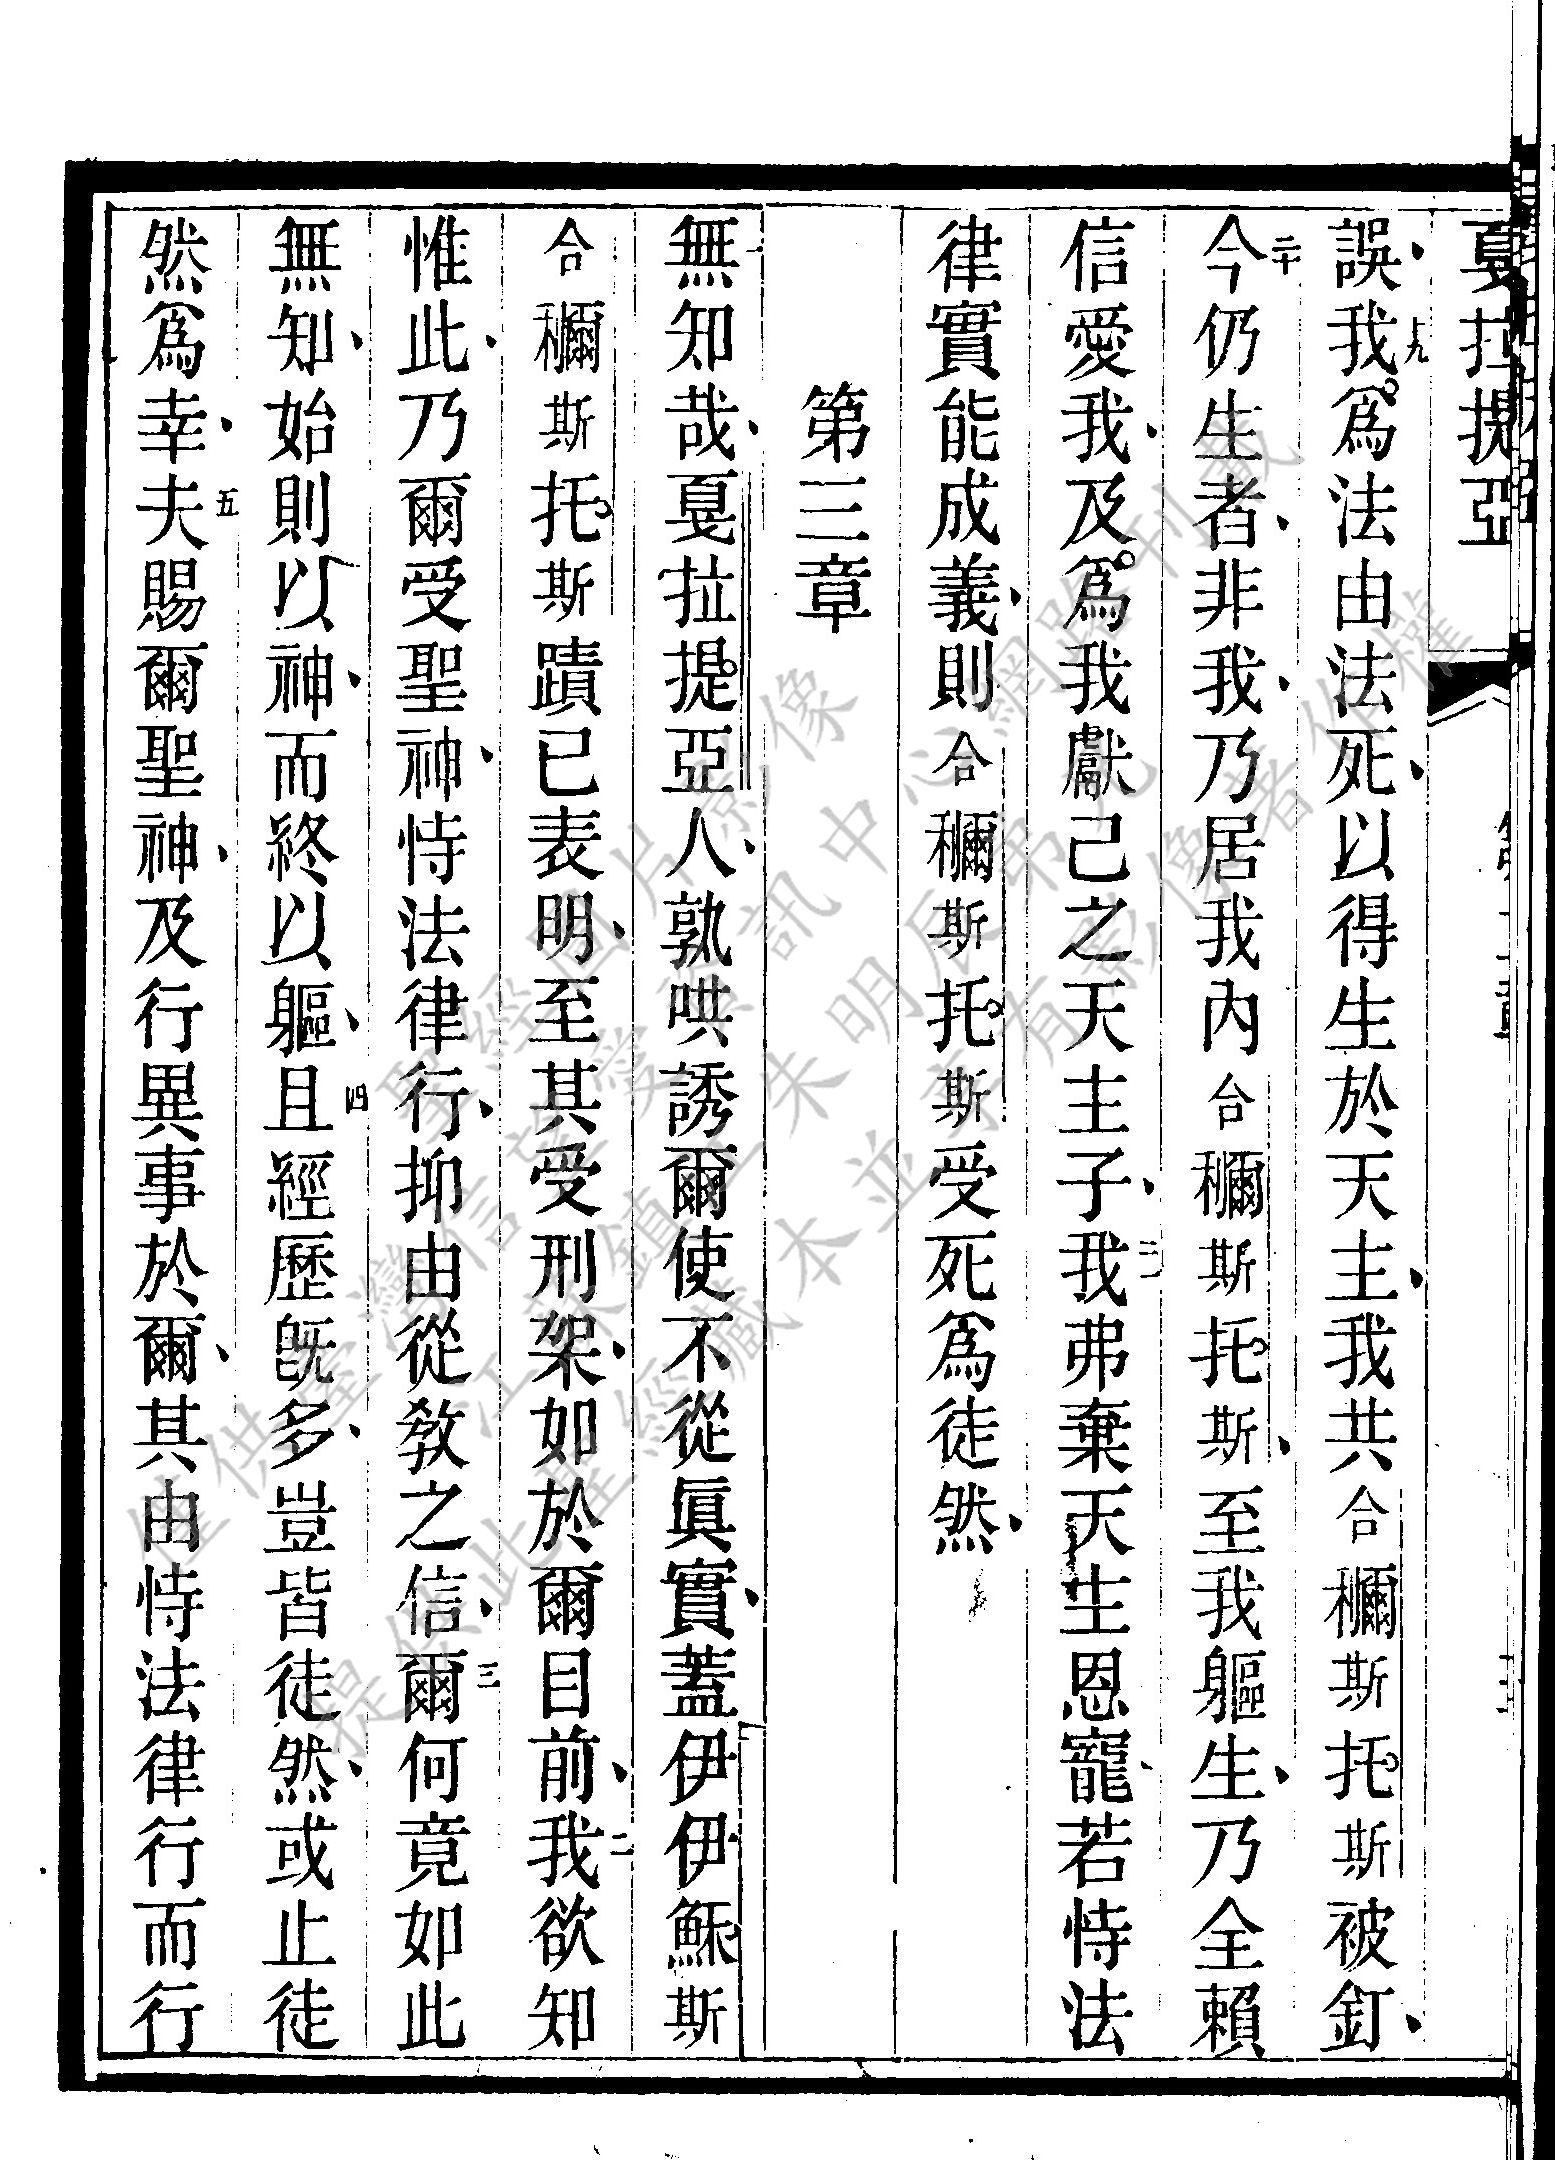 戛拉提亞
誤我十九爲法由法死以得生於天主我共合穪斯托斯被釘
今二十仍生者非我乃居我內合穪斯托斯至我軀生乃全賴
信愛我及爲我獻己之天主子我二一弗棄天主恩寵若恃法
律實能成義則合穪斯托斯受死爲徒然
第三章
無一知哉戛拉提亞人孰哄誘爾使不從眞實蓋伊伊穌斯
合穪斯托斯蹟已表明至其受刑架如於爾目前我二欲知
惟此乃爾受聖神恃法律行抑由從教之信爾三何竟如此
無知始則以神而終以軀且四經歷旣多豈皆徒然或止徒
然爲幸夫五賜爾聖神及行異事於爾其由恃法律行而行
僅供臺灣信望愛資訊中心網路刊載
提供此聖經藏本並享有影像著作權